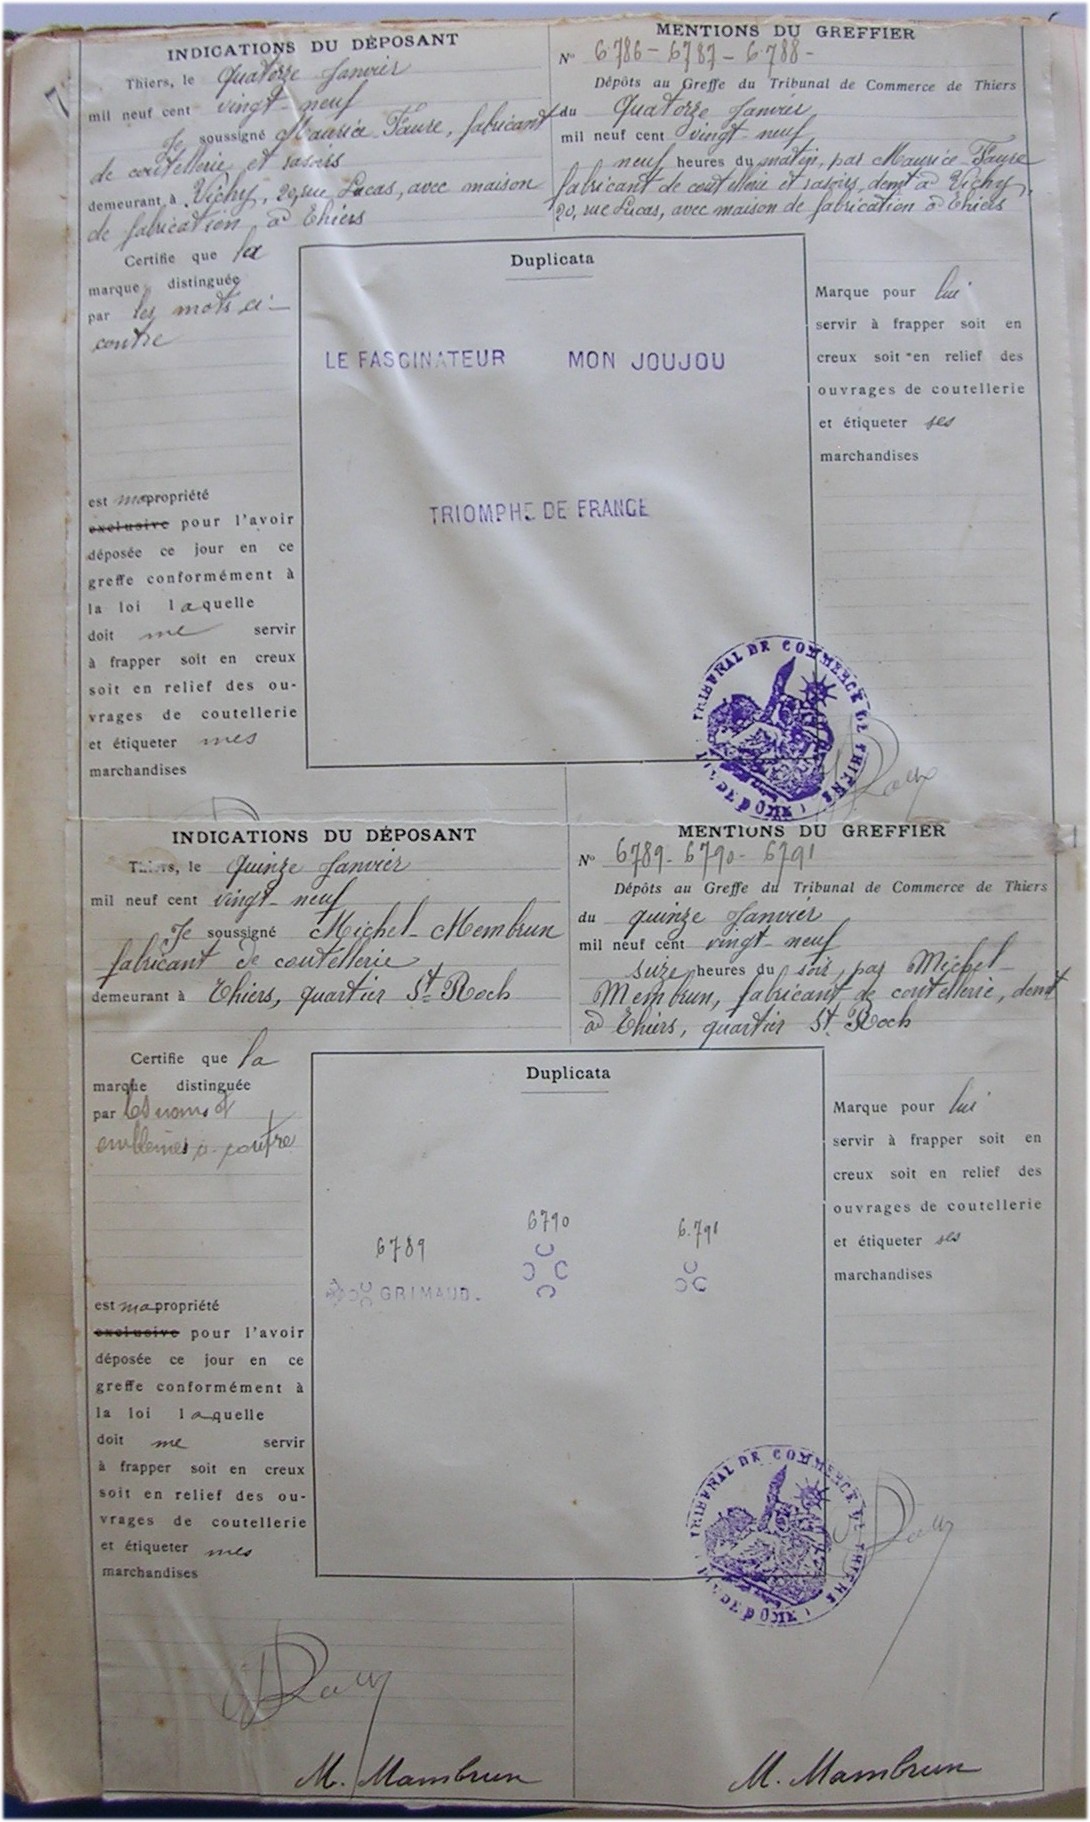 INDICATIONS DU DÉPOSANT
Thiers, le Quatorze Janvier
mil neuf cent vingt-neuf
Je soussigné Maurice Faure, fabricant
de coutellerie et rasoirs
demeurant à Vichy, 20, rue Lucas, avec maison
de fabrication à Thiers
Certifie que la
marque distinguée
par les mots ci-
contre
est ma propriété
exclusive pour l'avoir
déposée ce jour en ce
greffe conformément à
la loi laquelle
doit me servir
à frapper soit en creux
soit en relief des ou-
vrages de coutellerie
et étiqueter mes
marchandises
MENTIONS DU GREFFIER
N° 6786 - 6787 - 6788 -
Dépôts au Greffe du Tribunal de Commerce de Thiers
du Quatorze Janvier
mil neuf cent vingt-neuf
neuf heures du matin, par Maurice Faure
fabricant de coutellerie et rasoirs, demt à Vichy,
20, rue Lucas, avec maison de fabrication à Thiers
Duplicata
LE FASCINATEUR MON JOUJOU
TRIOMPHE DE FRANCE
Marque pour lui
servir à frapper soit en
creux soit en relief des
ouvrages de coutellerie
et étiqueter ses
marchandises
TRIBUNAL DE COMMERCE DE THIERS
PUY DE DOME
INDICATIONS DU DÉPOSANT
Thiers, le Quinze Janvier
mil neuf cent vingt-neuf
Je soussigné Michel Membrun
fabricant de coutellerie
demeurant à Thiers, quartier St Roch
Certifie que la
marque distinguée
par les noms et
emblèmes ci-contre
est ma propriété
exclusive pour l'avoir
déposée ce jour en ce
greffe conformément à
la loi laquelle
doit me servir
à frapper soit en creux
soit en relief des ou-
vrages de coutellerie
et étiqueter mes
marchandises
M. Mambrun
MENTIONS DU GREFFIER
N° 6789 - 6790 - 6791
Dépôts au Greffe du Tribunal de Commerce de Thiers
du quinze Janvier
mil neuf cent vingt-neuf
seize heures du soir, par Michel
Membrun, fabricant de coutellerie, demt
à Thiers, quartier St Roch
Duplicata
6789 6790 6.791
GRIMAUD
Marque pour lui
servir à frapper soit en
creux soit en relief des
ouvrages de coutellerie
et étiqueter ses
marchandises
TRIBUNAL DE COMMERCE DE THIERS
PUY DE DOME
M. Mambrun